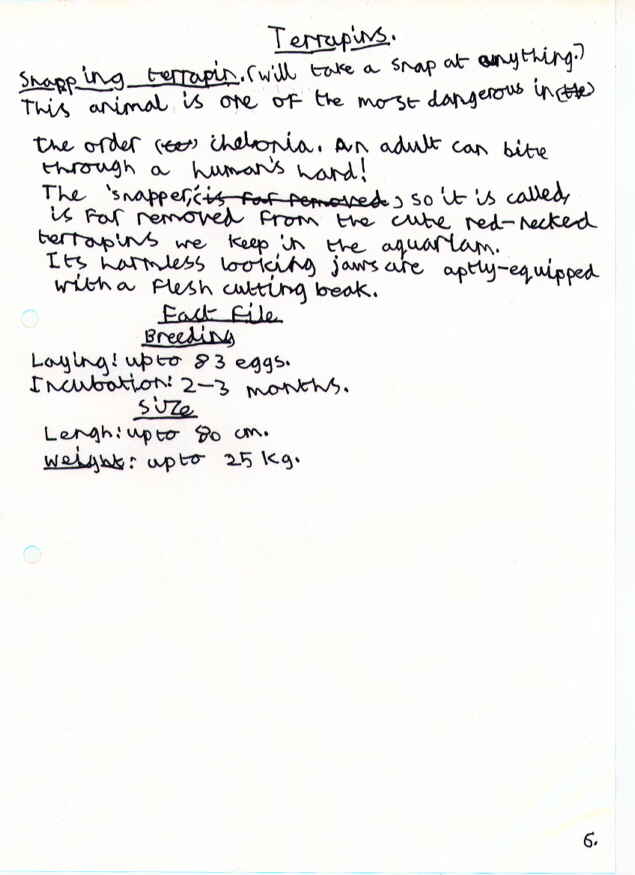 Terrapins.
Snapping terrapin. (will take a snap at anything.)
This animal is one of the most dangerous in (the)
the order (to) chelonia. An adult can bite
through a human's hand!
The 'snapper', (is far removed, so it is called,
is far removed from the cute red-necked
terrapins we keep in the aquariam.
Its harmless looking jaws are aptly-equipped
with a flesh cutting beak.
Fact File
Breeding
Laying: up to 83 eggs.
Incubation: 2-3 months.
Size
Lengh: up to 80 cm.
Weight: up to 25 kg.
6.